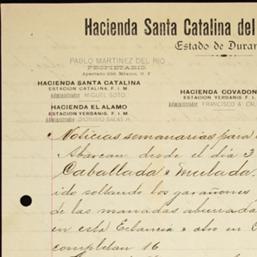 Hacienda Santa Catalina del
Estado de Duran
PABLO MARTINEZ DEL RIO
PROPIETARIO.
Apartado 260, México, D. F.
HACIENDA SANTA CATALINA
ESTACION CATALINA, F. I. M.
Administrador MIGUEL SOTO.
HACIENDA COVADON
ESTACION YERBANIS, F. I. M.
Administrador FRANCISCO A. 
HACIENDA EL ALAMO
ESTACION YERBANIS, F. I. M.
Administrador DIONISIO SALAS
Noticias semanarias para
Abarcan desde el dia 3
Caballada é mulada.
ido soltando los garañones
de las manadas ahumada
en esta Estancia é otro en
completan 16